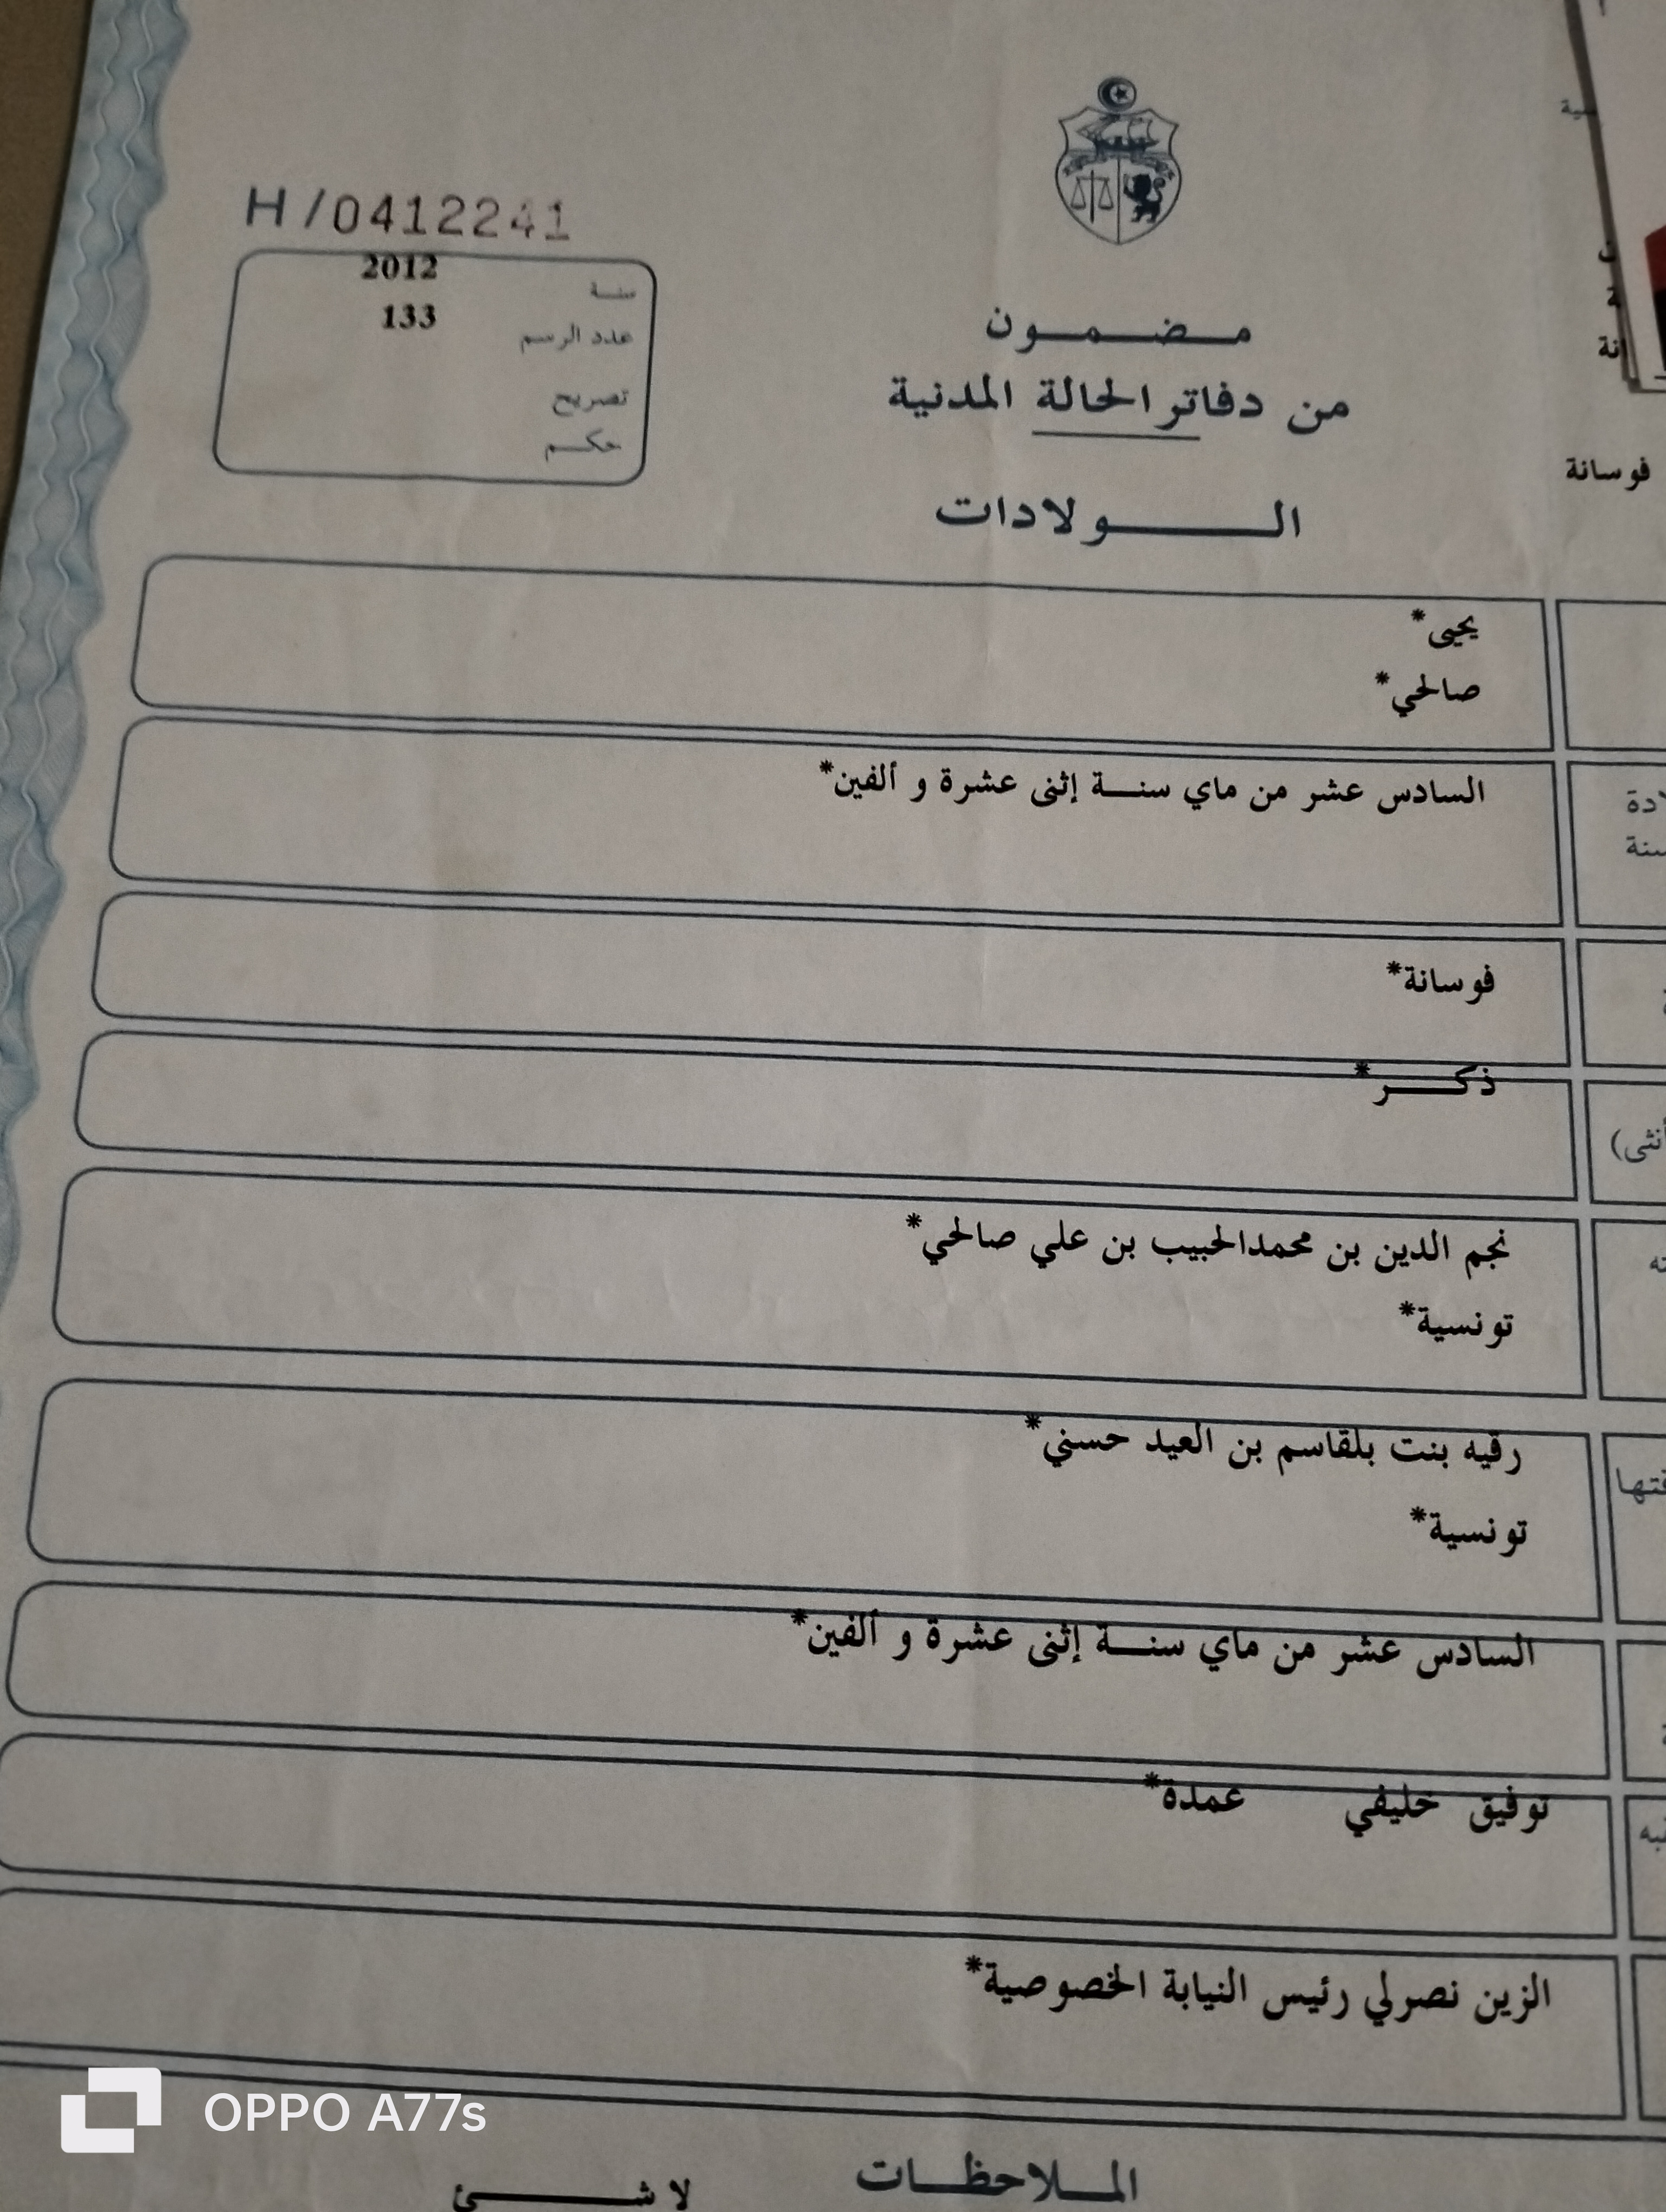 H/0412241
سنة 2012
عدد الرسم 133
تصريح
حكم
مضمون
من دفاتر الحالة المدنية
الولادات
فوسانة
يحيى*
صالحي*
السادس عشر من ماي سنة إثنى عشرة و ألفين*
فوسانة*
ذكر*
أنثى)
نجم الدين بن محمدالحبيب بن علي صالحي*
تونسية*
رقيه بنت بلقاسم بن العيد حسني*
تونسية*
السادس عشر من ماي سنة إثنى عشرة و ألفين*
توفيق خليفي عمدة*
الزين نصرلي رئيس النيابة الخصوصية*
الملاحظات
لا شئ
OPPO A77s